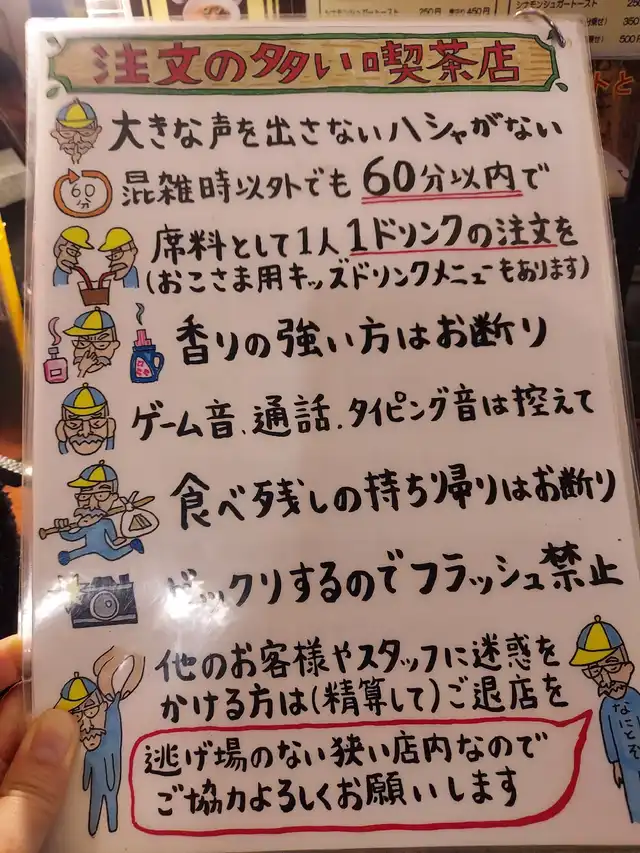 シナモンシュガートースト
250円
450円
350
500円
注文の多い喫茶店
大きな声を出さないハシャがない
60分
混雑時以外でも60分以内で
席料として1人1ドリンクの注文を
(おこさま用キッズドリンクメニューもあります)
香りの強い方はお断り
ゲーム音、通話、タイピング音は控えて
食べ残しの持ち帰りはお断り
ビックリするのでフラッシュ禁止
他のお客様やスタッフに迷惑を
かける方は(精算して)ご退店を
なにとぞ
逃げ場のない狭い店内なので
ご協力よろしくお願いします